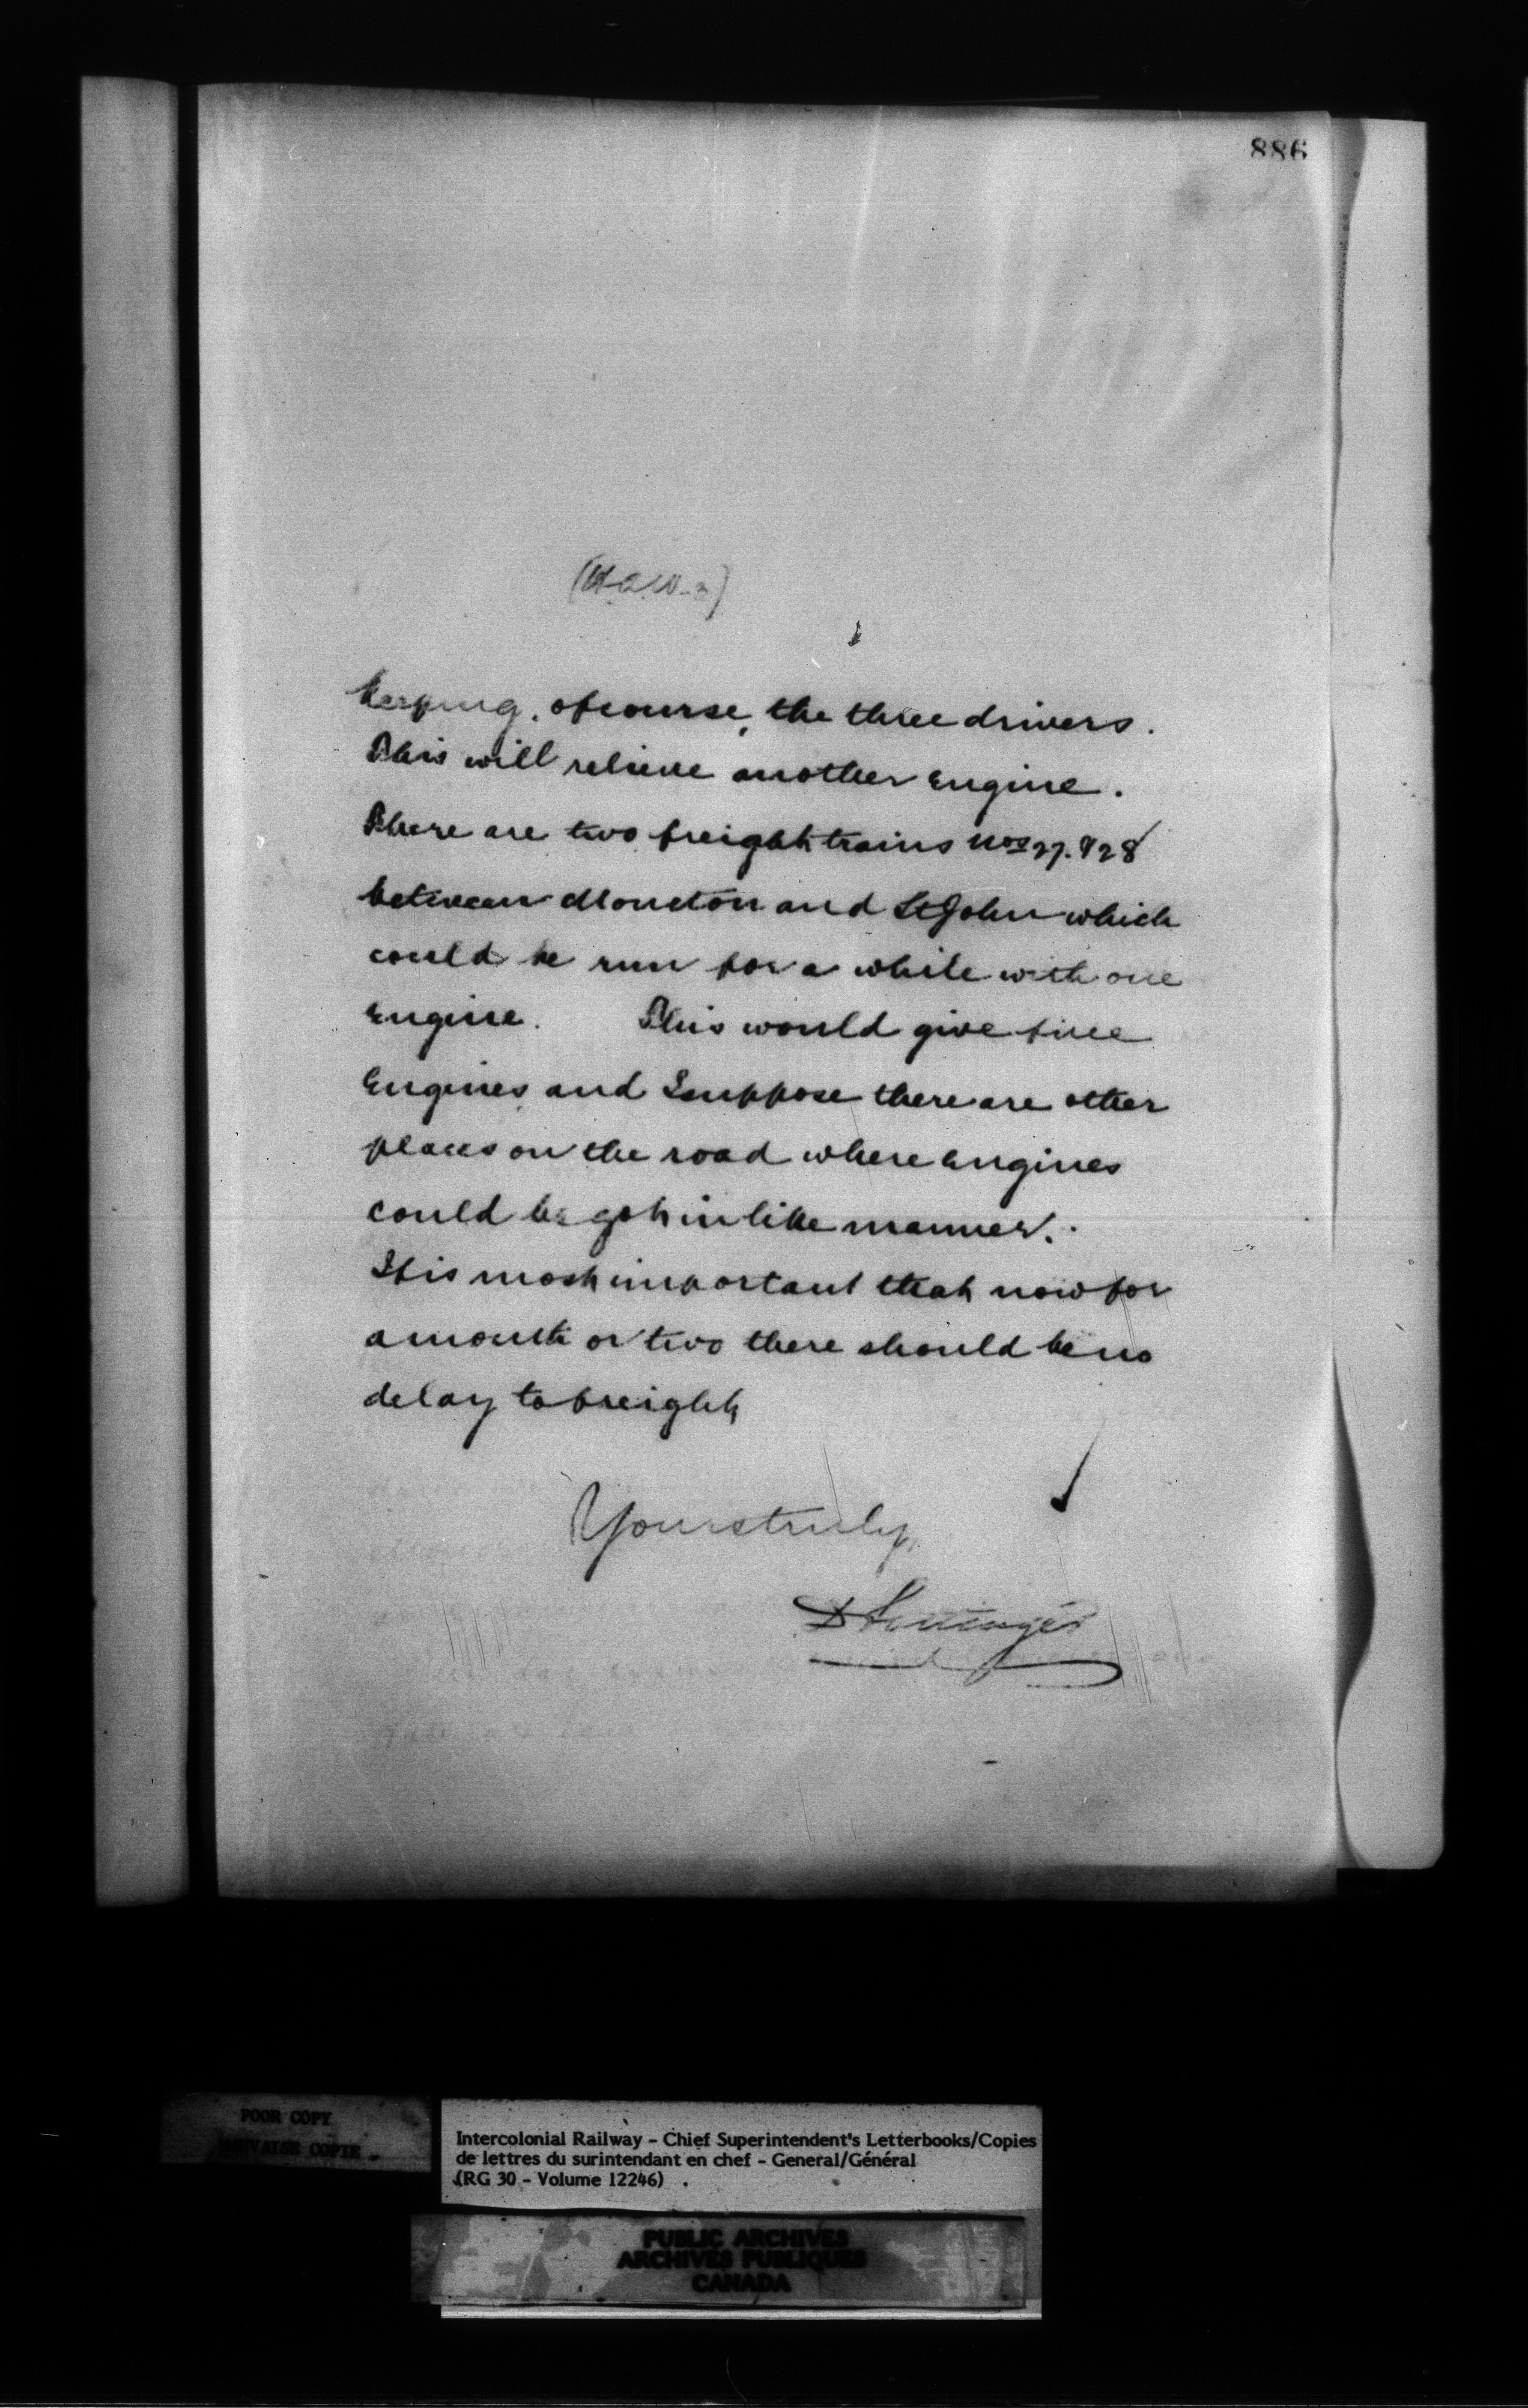 886
(H.A.W-3)
keeping, of course, the three drivers.
This will relieve another engine.
There are two freight trains Nos 27. & 28
between Moncton and St John which
could be run for a while with one
engine. This would give five
Engines and I suppose there are other
places on the road where engines
could be got in like manner.
It is most important that now for
a month or two there should be no
delay to freight
Yours truly,
D Pottinger
POOR COPY
MAUVAISE COPIE
Intercolonial Railway - Chief Superintendent's Letterbooks/Copies
de lettres du surintendant en chef - General/Général
(RG 30 - Volume 12246)
PUBLIC ARCHIVES
ARCHIVES PUBLIQUES
CANADA